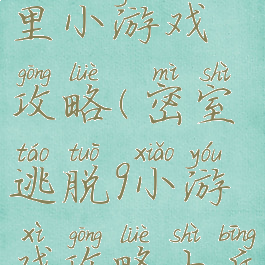 里小游戏
gōng lüè mì shì
攻略(密室
táo tuō xiǎo yóu
逃脱9小游
xì gōng lüè shí bīng
戏攻略